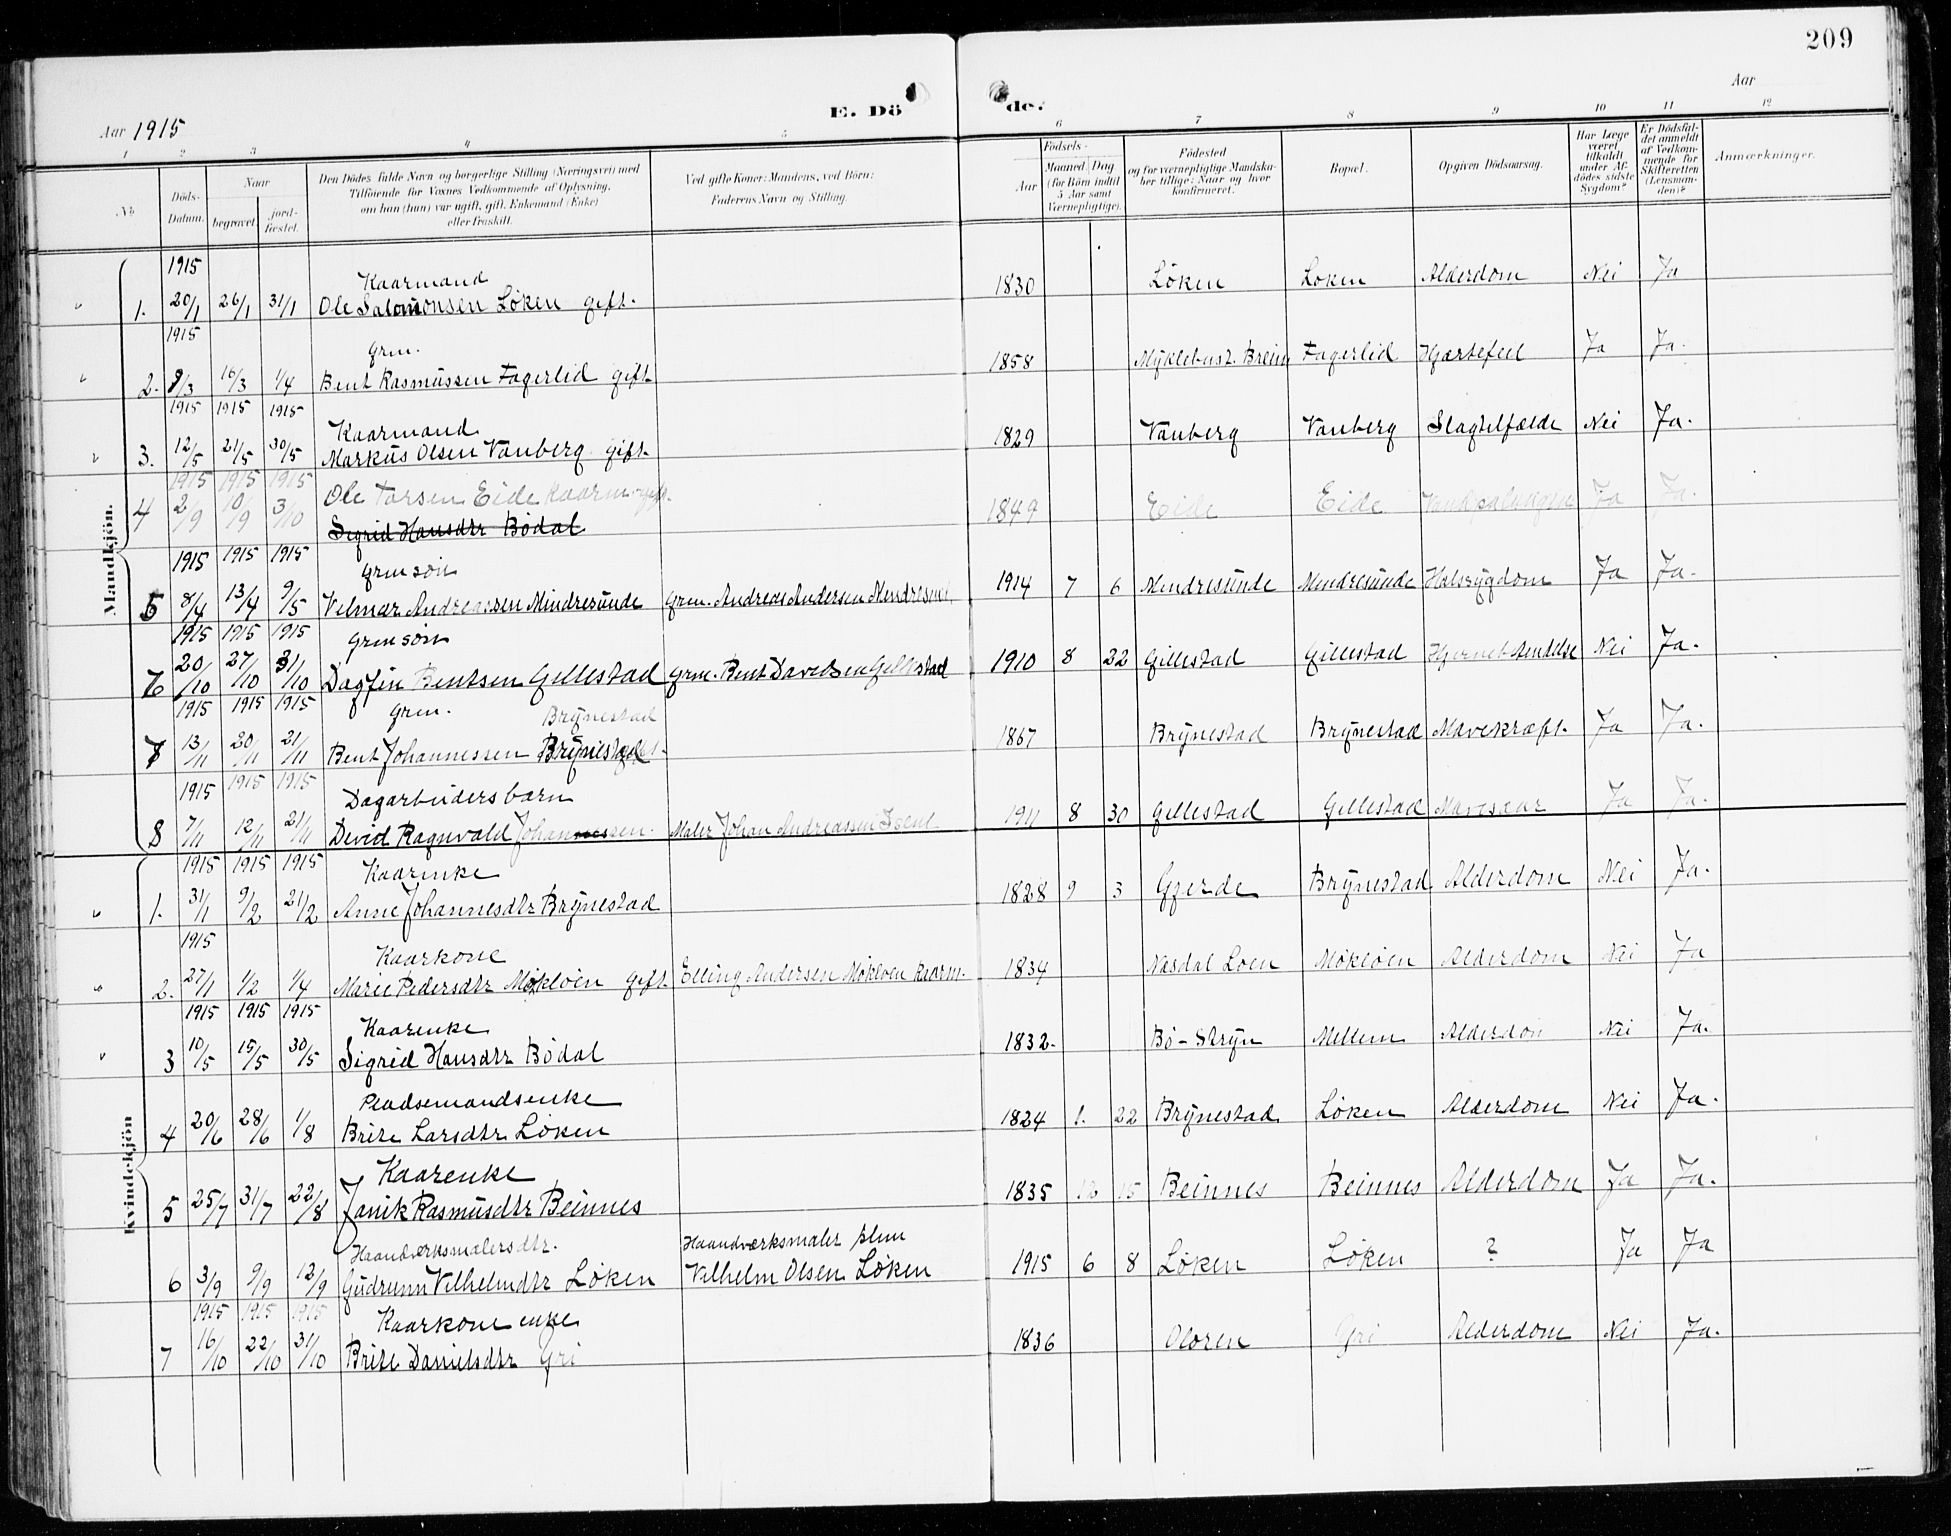 209
Aar 1915 E. Dö de. Aar
1 2 3 4 5 6 7 8 9 10 11 12
No. Döds-Datum. Naar begravet. jordfæstet. Den Dödes fulde Navn og borgerlige Stilling (Næringsvei) med Tilföiende for Voxnes Vedkommende af Oplysning, om han (hun) var ugift, gift, Enkemand (Enke) eller fraskilt. Ved gifte Koner: Mandens, ved Börn: Faderens Navn og Stilling. Födsels- Aar Maaned. Dag (for Börn indtil 5 Aar samt Værnepligtige). Födested og for værnepligtige Mandskaber tillige: Naar og hvor konfirmeret. Bopæl. Opgiven Dödsaarsag. Har Læge været tilkaldt under Afdödes sidste Sygdom? Er Dödsfaldet anmeldt af Vedkommende for Skifteretten (Lensmanden)? Anmærkninger.
Mandkjön.
1915 Kaarmand
1. 20/1 26/1 31/1 Ole Salomonsen Løken gift. 1830 Løken Løken Alderdom Nei Ja
1915 Grm.
2. 9/3 16/3 1/4 Bent Rasmussen Fagerlid gift. 1858 Myklebust. Breim Fagerlid Hjærtefeil Ja Ja.
1915 1915 1915 Kaarmand
3. 12/5 21/5 30/5 Markus Olsen Vanberg gift. 1829 Vanberg Vanberg Slagtilfælde Nei Ja.
1915 1915 1915 Ole Tarsen Eide Kaarm. gift.
4 2/9 10/9 3/10 Sigrid Hansdtr Bødal 1849 Eide Eide Ja Ja.
1915 1915 1915 Grm søn
5 8/4 13/4 9/5 Velmar Andreassen Mindresunde Grm. Andreas Andersen 1914 7 6 Mendresunde Mendresunde Halssygdom Ja Ja.
1915 1915 1915 Grm søn
6 20/10 27/10 31/10 Dagfin Bentsen Gillestad Grm. Bent Davidsen Gillestad 1910 8 22 Gillestad Gillestad Nei Ja.
1915 1915 1915 Grm. Brynestad
7 13/11 20/11 21/11 Bent Johannessen Brynestad 1867 Brynestad Brynestad Mavekræft. Ja Ja.
1915 1915 1915 Dagarbeidersbarn
8 7/11 12/11 21/11 David Ragnvald Johannessen. Maler Johan Andreassen 1911 8 30 Gillestad Gillestad Mavesaar Ja Ja.
Kvindekjön
1915 1915 1915 Kaarenke
1. 31/1 9/2 21/2 Anne Johannesdtr Brynestad 1828 9 3 Gjerde Brynestad Alderdom Nei Ja.
1915 Kaarkone
2. 27/1 1/2 1/4 Marie Pedersdtr Mökloen gift. Elling Andersen Mökloen Kaarm. 1834 Næsdal Loen Mökløen Alderdom Nei Ja
1915 1915 1915 Kaarenke
3 10/5 15/5 30/5 Sigrid Hansdtr Bødal 1832. Bø - Stryn Mellem Alderdom Nei Ja.
Pladsemandsenke
4 20/6 28/6 1/8 Brite Larsdtr Løken 1824 1. 22 Brynestad Løken Alderdom Nei Ja.
Kaarenke
5 25/7 31/7 22/8 Janik Rasmusdtr Beinnes 1835 12 15 Beinnes Beinnes Alderdom Ja Ja.
Haandverksmalersdtr. Haandværksmaler
6 3/9 9/9 12/9 Gudrunn Vilhelmdtr Løken Vilhelm Olsen Løken 1915 6 8 Løken Løken ? Ja Ja
1915 1915 1915 Kaarkone enke
7 16/10 22/10 31/10 Brite Danielsdtr Gri 1836 Oloren Gri Alderdom Nei Ja.